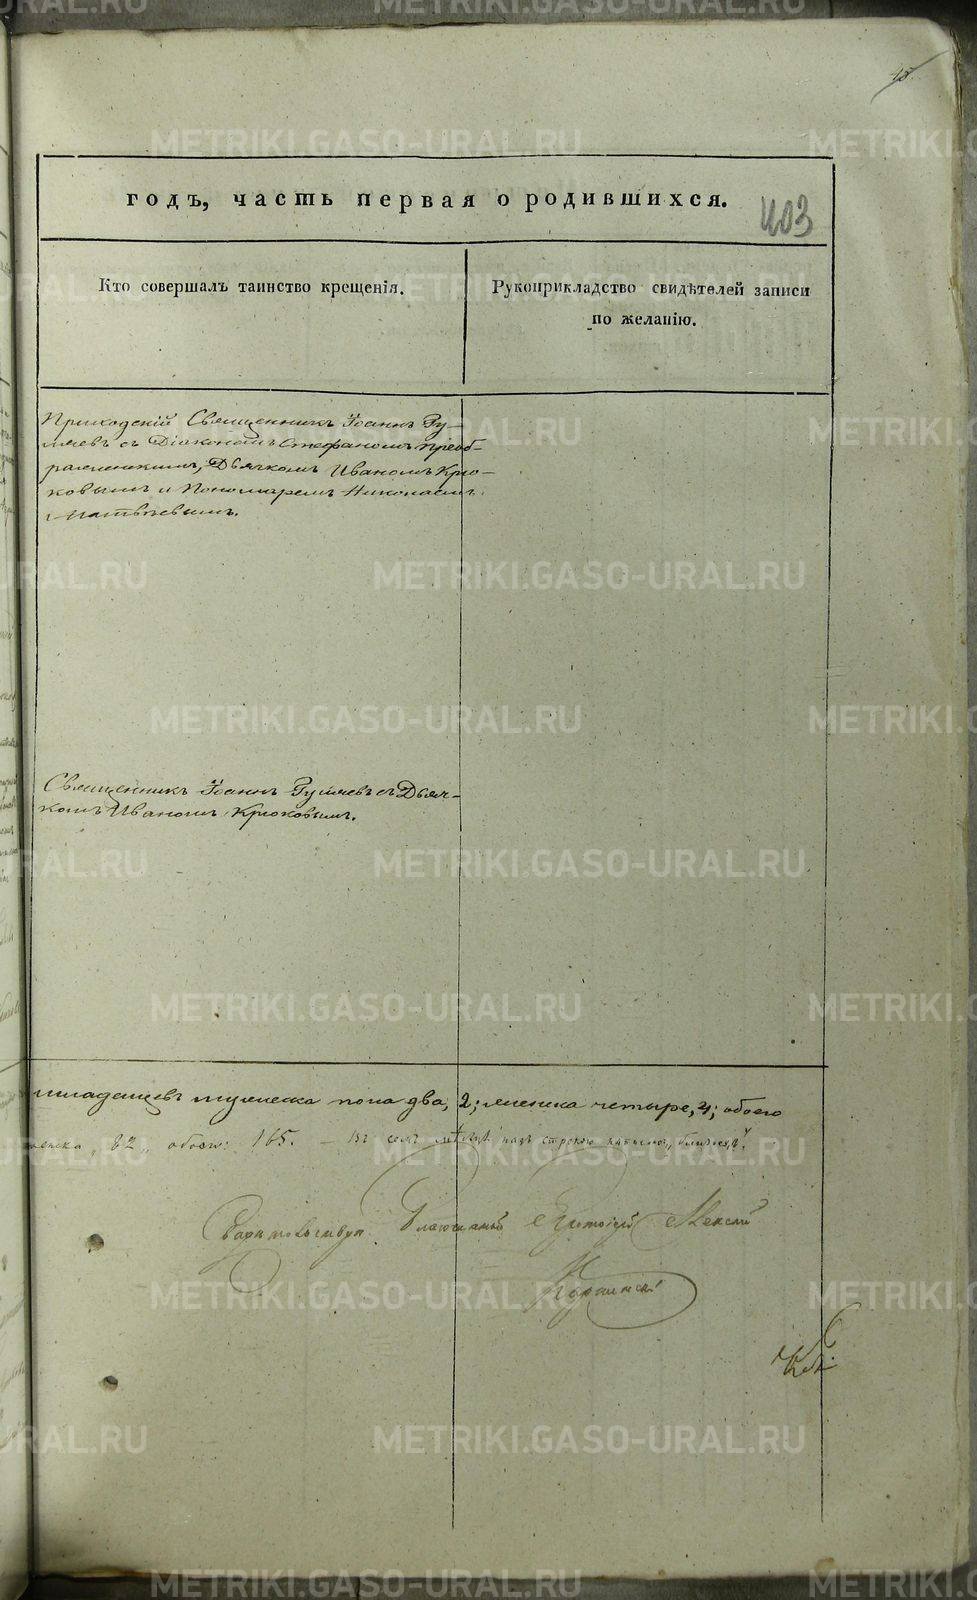 годъ, часть первая о родившихся.
403
Кто совершалъ таинство крещенія.
Рукоприкладство свидѣтелей записи
по желанію.
Приходскій Священникъ Іоаннъ Гу-
ляевъ съ Діакономъ Стефаномъ Преоб-
раженскимъ, Дьячкомъ Иваномъ Крю-
ковымъ и Пономаремъ Николаемъ
Матвѣевымъ.
Священникъ Іоаннъ Гуляевъ съ Дьяч-
комъ Иваномъ Крюковымъ.
младенцевъ мужеска пола два, 2; женска четыре, 4; обоего
женска „82„ обоего: 165. – Въ семъ надъ строкою написано
Благочинный Алексѣй
METRIKI.GASO-URAL.RU